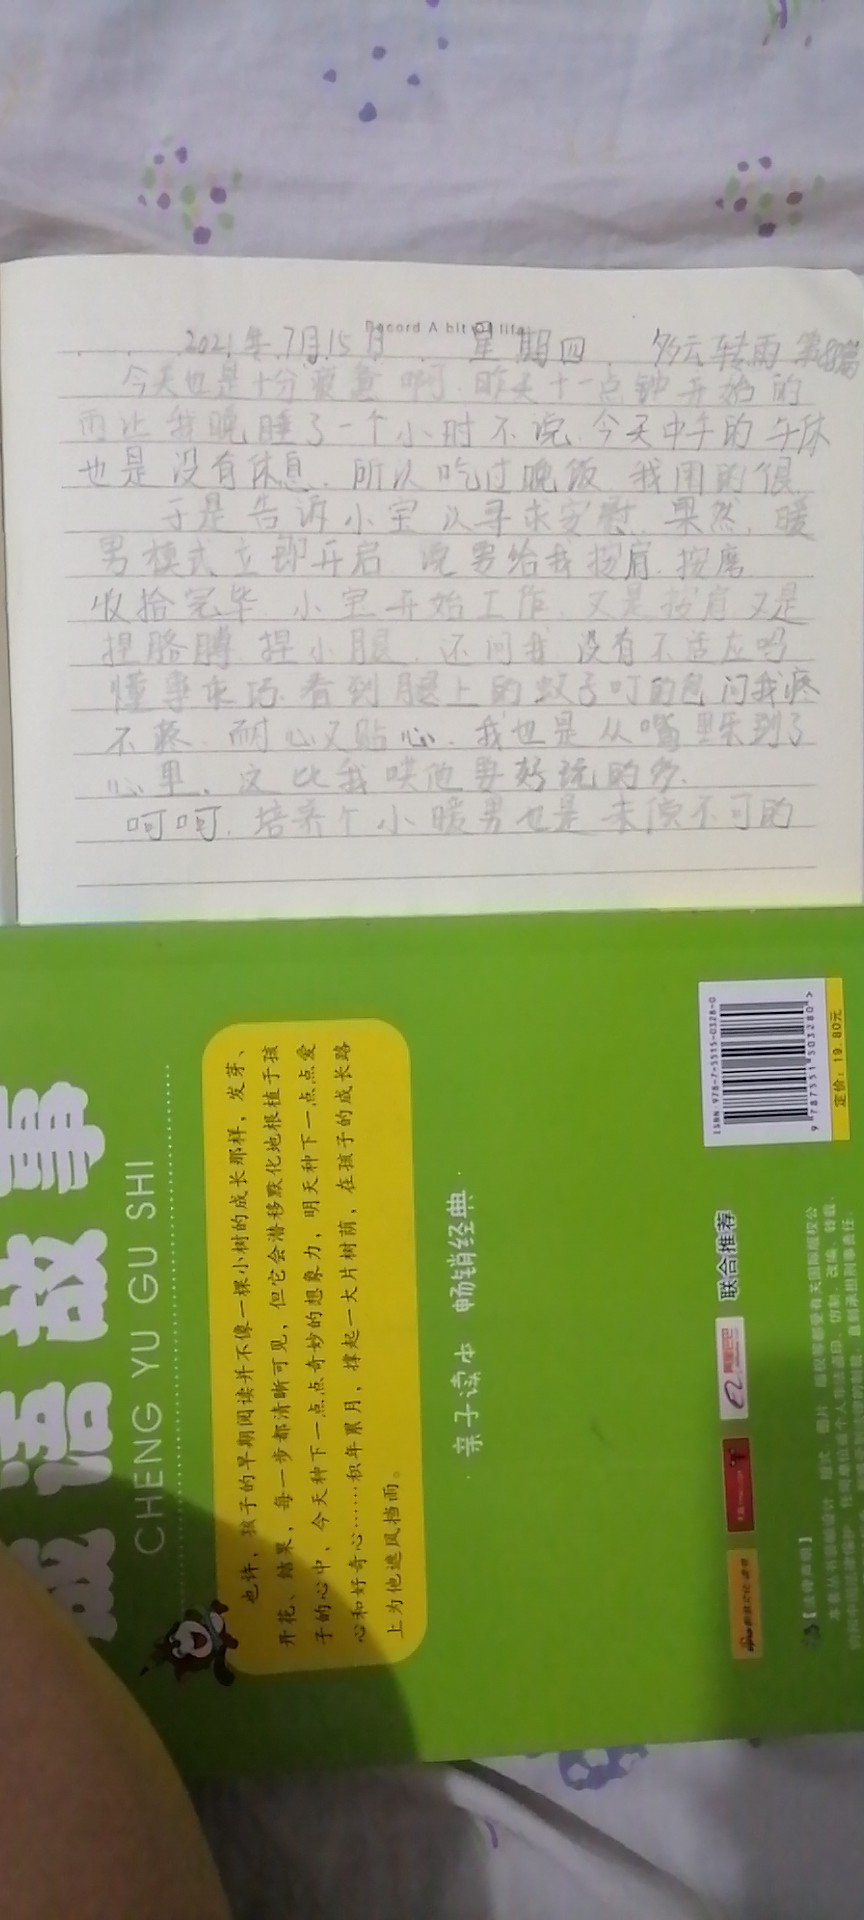 Record A bit of life
2021年7月15日 星期四 多云转雨 第8篇
今天也是十分疲惫啊.昨天十一点钟开始的
雨让我晚睡了一个小时不说.今天中午的午休
也是没有休息.所以吃过晚饭 我困的很
于是告诉小宝以寻求安慰.果然,暖
男模式立即开启 说要给我按肩.按摩
收拾完毕.小宝开始工作.又是按肩又是
捏胳膊.捏小腿.还问我 没有不适应吗
懂事乖巧.看到腿上的蚊子叮的包问我疼
不疼.耐心又贴心.我也是从嘴里乐到了
心里.这比我哄他要好玩的多.
呵呵.培养个小暖男也是未尝不可的
成语故事
CHENG YU GU SHI
也许,孩子的早期阅读并不像一棵小树的成长那样,发芽、
开花、结果,每一步都清晰可见,但它会潜移默化地根植于孩
子的心中,今天种下一点点奇妙的想象力,明天种下一点点爱
心和好奇心……积年累月,撑起一大片树荫,在孩子的成长路
上为他遮风挡雨。
·亲子读本 畅销经典·
联合推荐
阿里巴巴
ISBN 978-7-5515-0328-0
9 787551 503280 >
定价:19.80元
【法律声明】